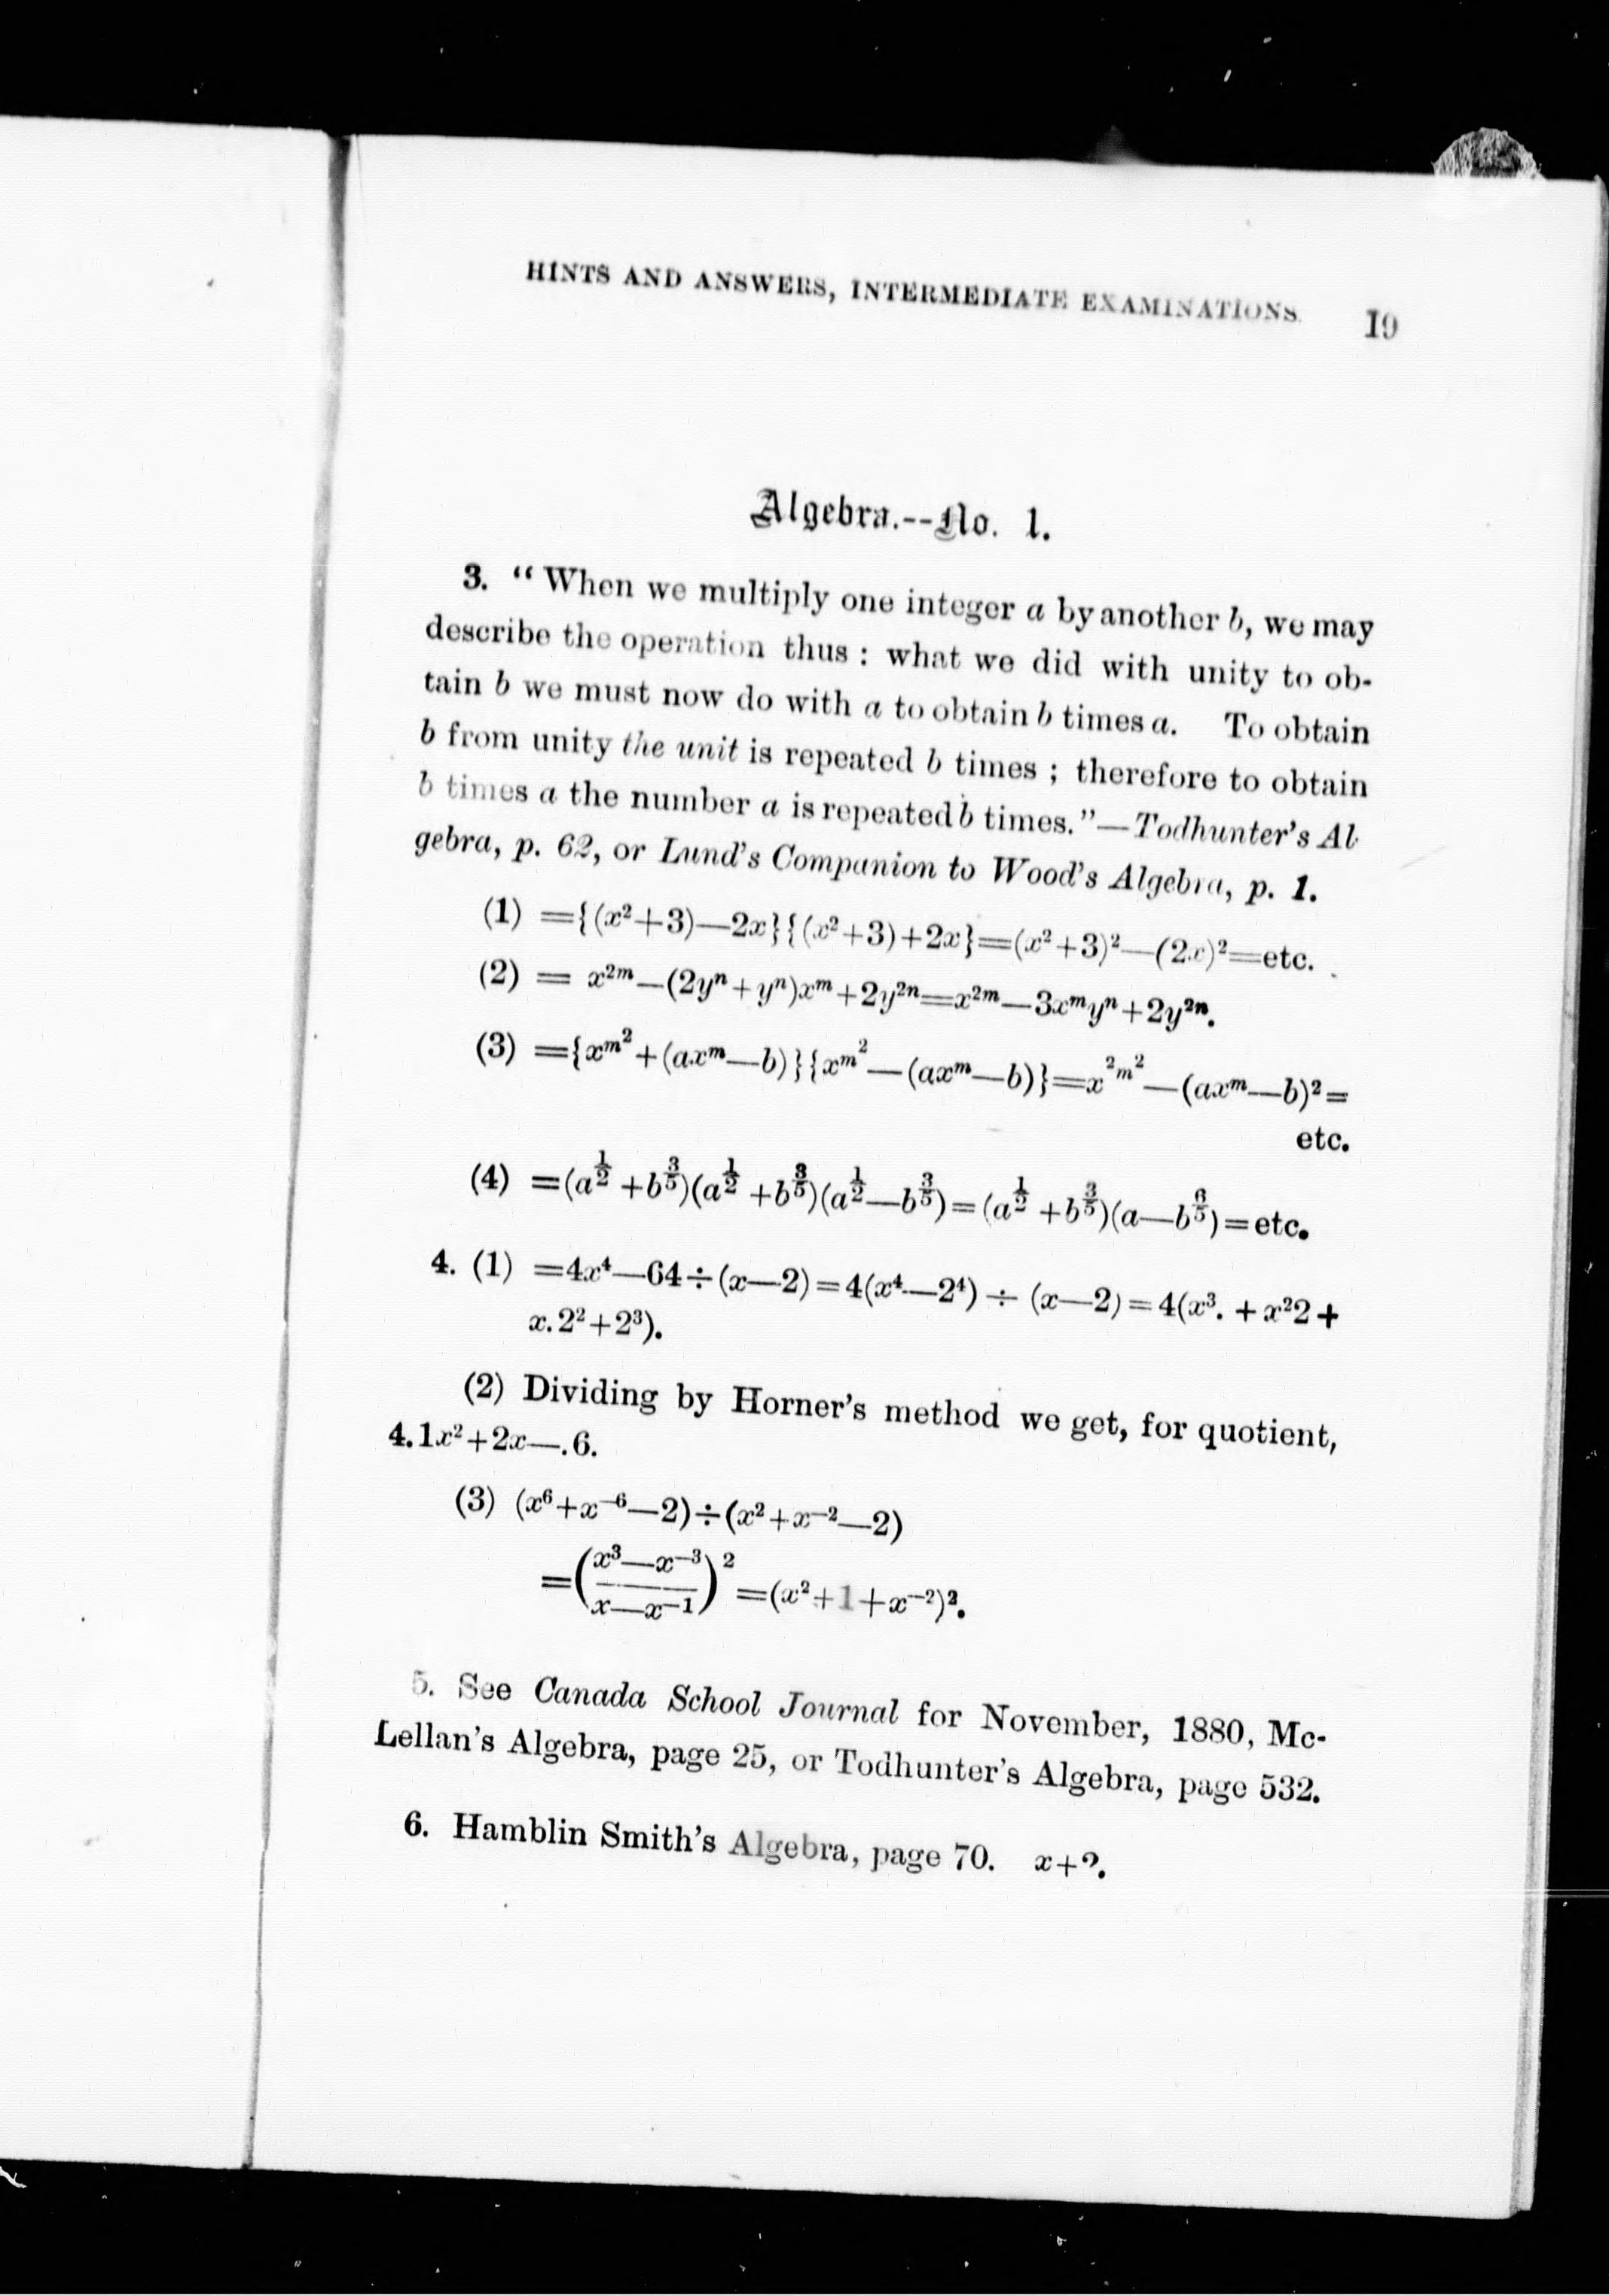 HINTS AND ANSWERS, INTERMEDIATE EXAMINATIONS. 19
Algebra.--No. 1.
3. “ When we multiply one integer a by another b, we may
describe the operation thus : what we did with unity to ob-
tain b we must now do with a to obtain b times a. To obtain
b from unity the unit is repeated b times ; therefore to obtain
b times a the number a is repeated b times.”—Todhunter's Al
gebra, p. 62, or Lund's Companion to Wood's Algebra, p. 1.
(1) ={(x²+3)—2x}{(x²+3)+2x}=(x²+3)²—(2x)²=etc.
(2) = x^{2m}—(2y^n+y^n)x^m+2y^{2n}=x^{2m}—3x^my^n+2y^{2n}.
(3) ={x^{m^2}+(ax^m—b)}{x^{m^2}—(ax^m—b)}=x^{2m^2}—(ax^m—b)²=
etc.
(4) =(a^{1/2}+b^{3/5})(a^{1/2}+b^{3/5})(a^{1/2}—b^{3/5})=(a^{1/2}+b^{3/5})(a—b^{6/5})=etc.
4. (1) =4x⁴—64÷(x—2)=4(x⁴—2⁴) ÷ (x—2)=4(x³. + x²2+
x.2²+2³).
(2) Dividing by Horner's method we get, for quotient,
4.1x²+2x—.6.
(3) (x⁶+x⁻⁶—2)÷(x²+x⁻²—2)
=((x³—x⁻³)/(x—x⁻¹))²=(x²+1+x⁻²)².
5. See Canada School Journal for November, 1880, Mc-
Lellan's Algebra, page 25, or Todhunter's Algebra, page 532.
6. Hamblin Smith's Algebra, page 70. x+